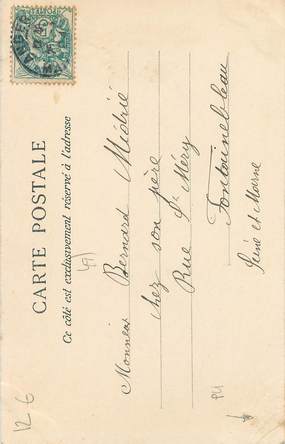 CARTE POSTALE
Ce côté est exclusivement réservé à l'adresse
Monsieur Bernard Médrié
chez son père
Rue St Méry
Fontainebleau
Seine et Marne
12 €